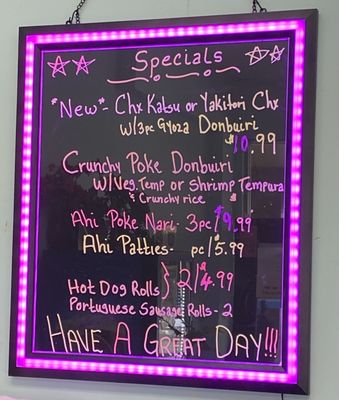 Specials
*New* - Chx Katsu or Yakitori Chx
w/3pc Gyoza Donbuiri
$10.99
Crunchy Poke Donbuiri
w/Veg. Temp or Shrimp Tempura
& Crunchy rice
Ahi Poke Nari 3pc/$9.99
Ahi Patties- pc/$5.99
Hot Dog Rolls } 2/$4.99
Portuguese Sausage Rolls - 2
Have A Great Day!!!